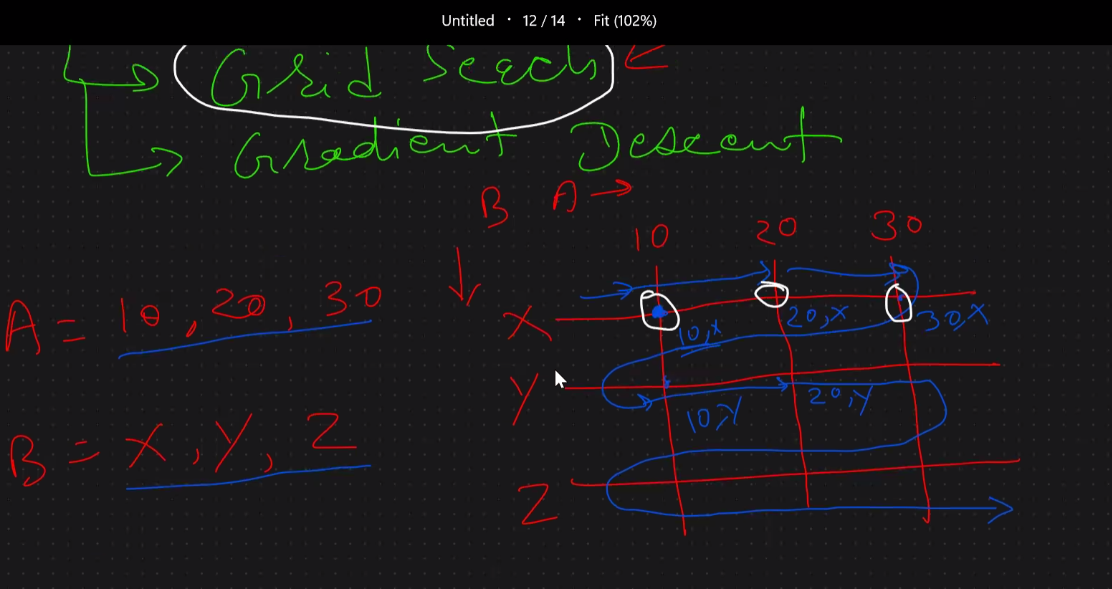 Untitled · 12 / 14 · Fit (102%)
Grid Seech
Gradient Descent
B A →
10 20 30
A = 10, 20, 30
X
10,X 20,X 30,X
Y
10,Y 20,Y
B = X, Y, Z
Z